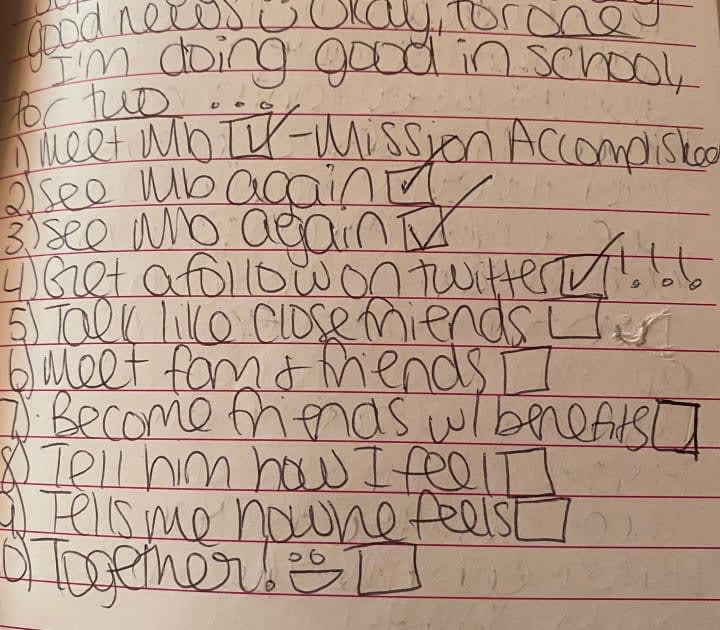 good news :) Okay, for one,
I'm doing good in school,
for two ...
1) Meet Mb ☑ - Mission Accomplished
2) see Mb again ☑
3) see Mb again ☑
4) Get a follow on twitter ☑!!!
5) Talk like close friends ☐
6) Meet fam & friends ☐
7) Become friends w/ benefits ☐
8) Tell him how I feel ☐
9) Tells me how he feels ☐
10) Together! ☐